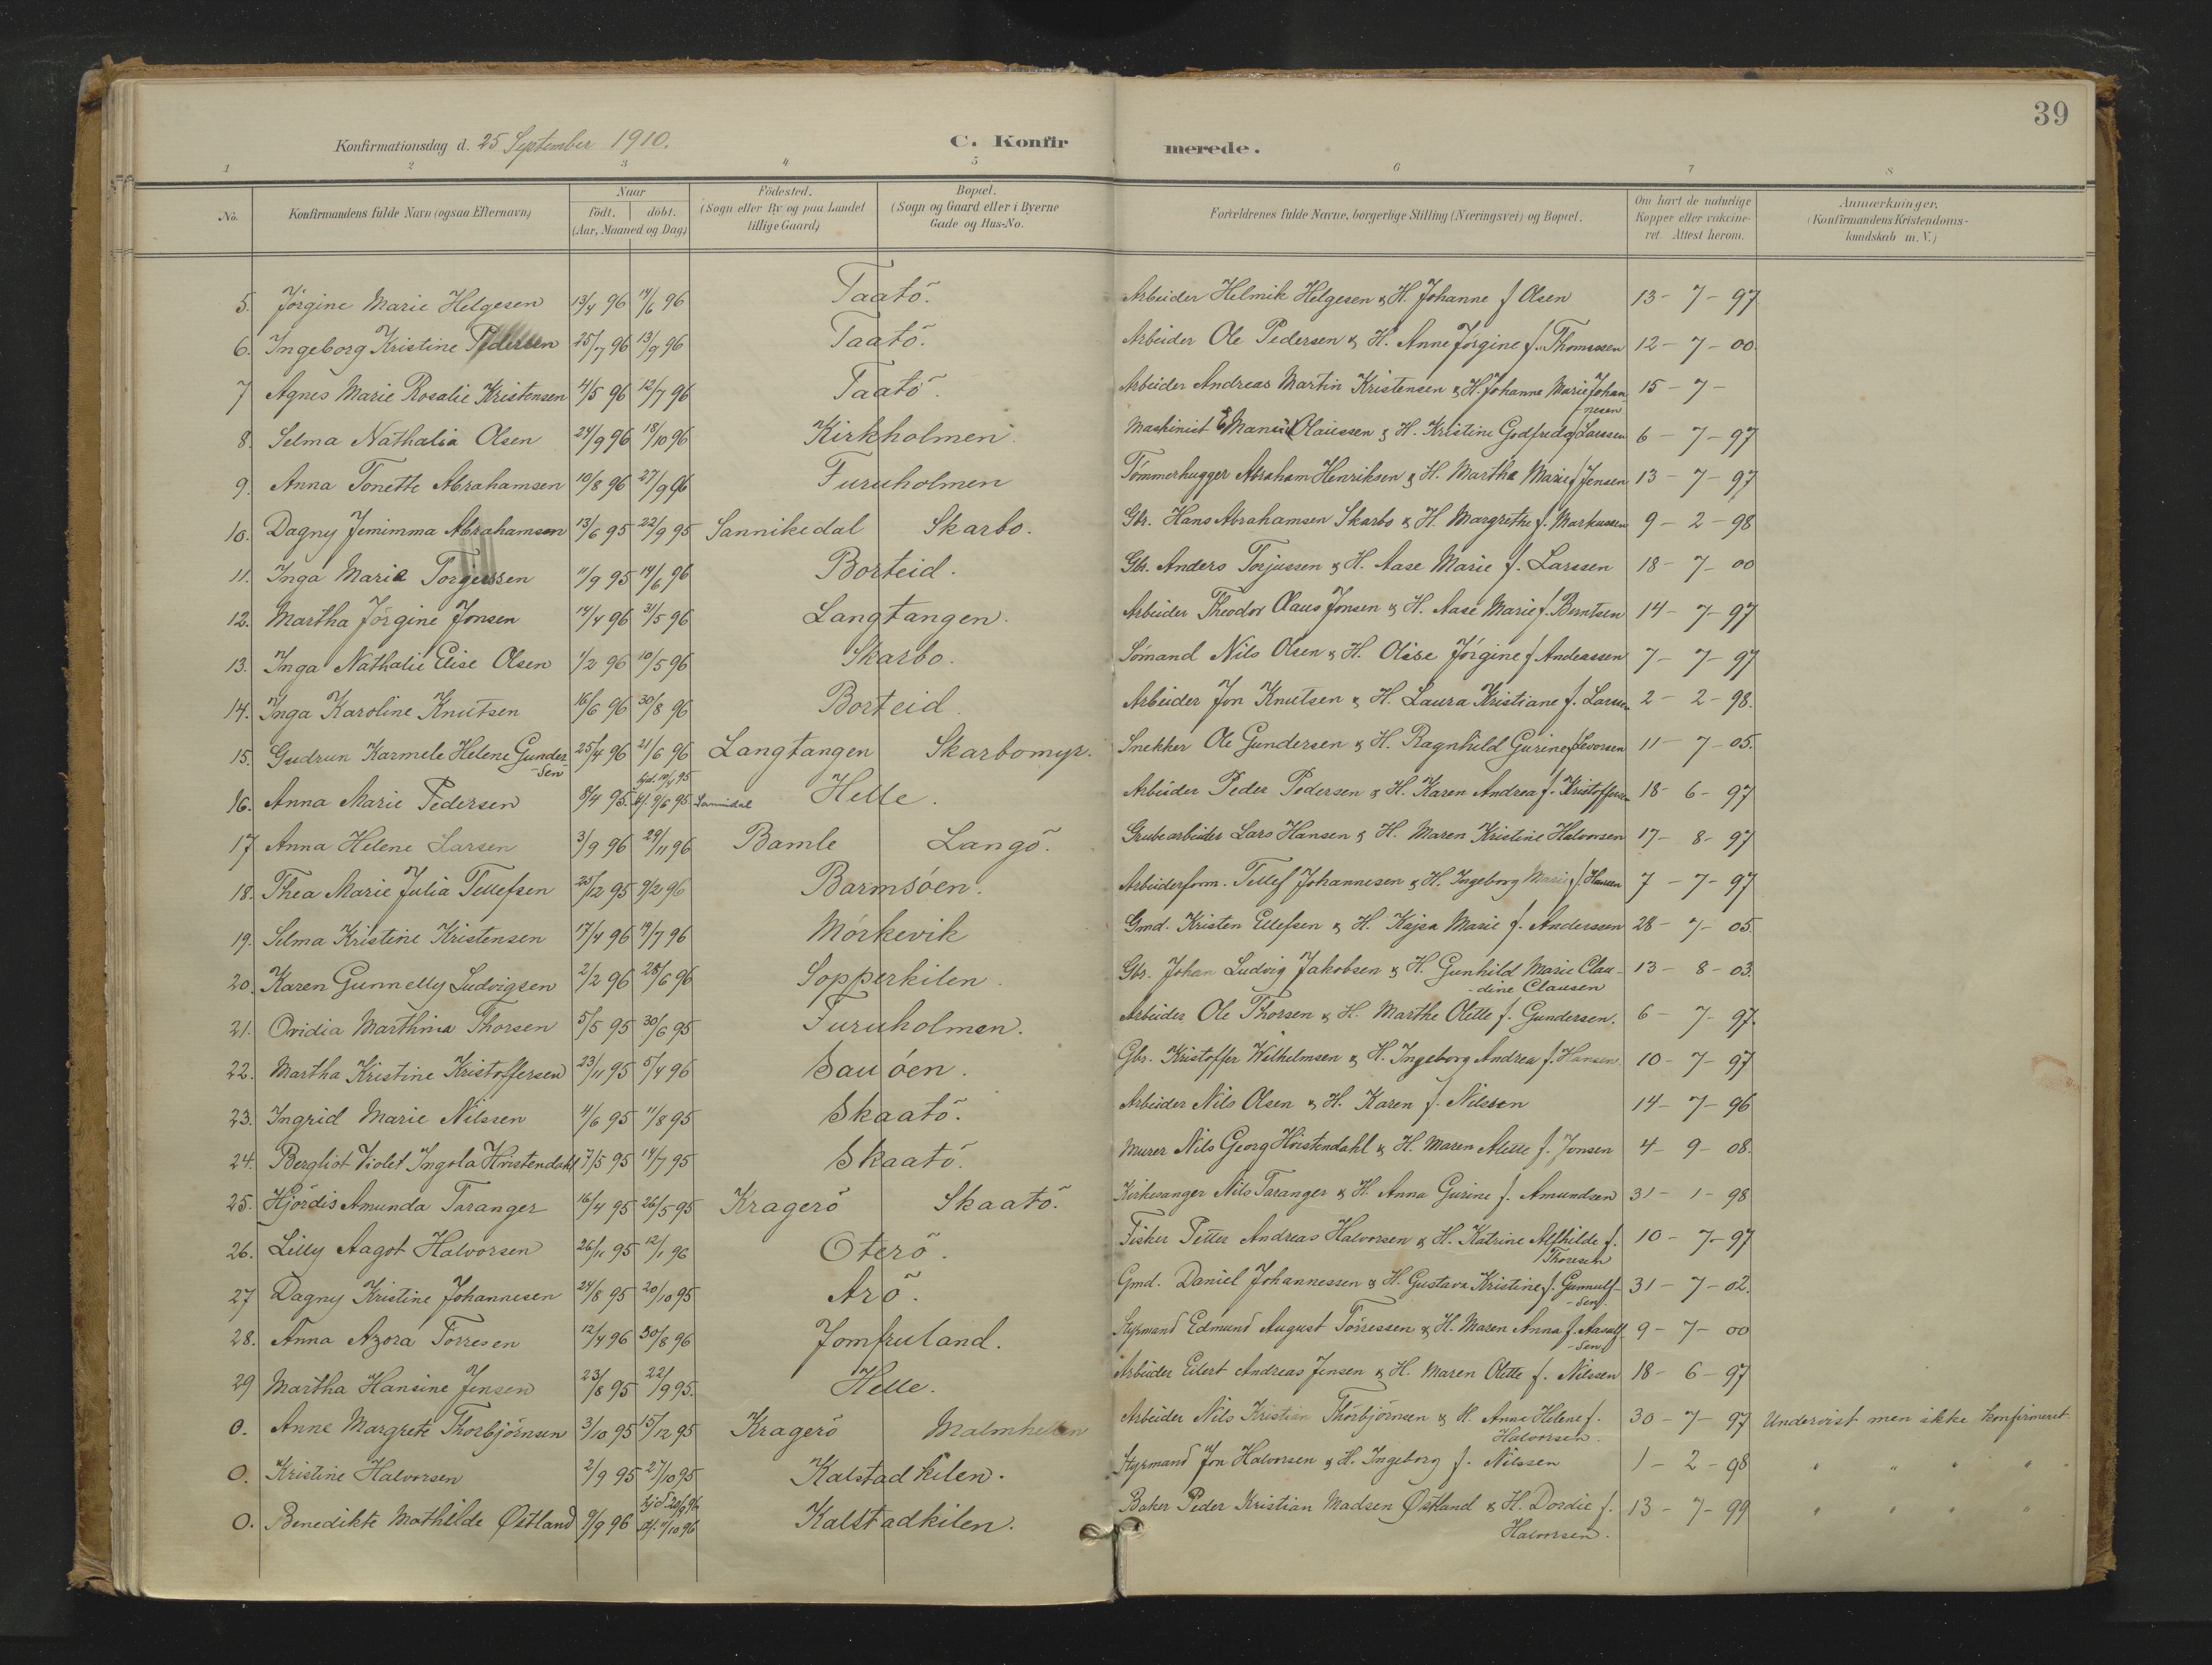 39
Konfirmationsdag d. 25 September 1910.
C. Konfirmerede.
1 2 3 4 5 6 7 8
No. Konfirmandens fulde Navn (ogsaa Efternavn) Naar født. døbt. (Aar, Maaned og Dag) Födested. (Sogn eller By og paa Landet tillige Gaard) Bopæl. (Sogn og Gaard eller i Byerne Gade og Hus-No. Forældrenes fulde Navne, borgerlige Stilling (Næringsvei) og Bopæl. Om havt de naturlige Kopper eller vakcineret. Attest herom. Anmærkninger. (Konfirmandens Kristendomskundskab m. V.)
5. Jörgine Marie Helgesen 13/4 96 14/6 96 Taatö. Arbeider Helmik Helgesen & H. Johanne f Olsen 13 - 7 - 97
6. Ingeborg Kristine Pedersen 25/7 96 13/9 96 Taatö. Arbeider Ole Pedersen & H. Anne Jörgine f. Thomassen 12 - 7 - 00.
7 Agnes Marie Rosalie Kristensen 4/5 96 12/7 96 Taatö. Arbeider Andreas Martin Kristensen & H. Johanne Marie Johan-
nesen 15 - 7 -
8. Selma Nathalia Olsen 24/9 96 18/10 96 Kirkholmen. Maskinist Olaussen & H. Kristine Godfreda f Larssen 6 - 7 - 97
9. Anna Tonette Abrahamsen 10/8 96 27/9 96 Furuholmen Tömmerhugger Abraham Henriksen & H. Martha Marie f Jensen 13 - 7 - 97
10. Dagny Jemimma Abrahamsen 13/6 95 22/9 95 Sannikedal Skarbo. Gbr. Hans Abrahamsen Skarbo & H. Margrethe f. Markussen 9 - 2 - 98
11. Inga Marie Torgerssen 11/9 95 14/6 96 Borteid. Gbr. Anders Torjussen & H. Aase Marie f. Larssen 18 - 7 - 00
12. Martha Jörgine Jonsen 14/4 96 31/5 96 Langtangen. Arbeider Theodor Olaus Jonsen & H. Aase Marie f. Berntsen 14 - 7 - 97
13. Inga Nathalie Elise Olsen 1/2 96 10/5 96 Skarbo. Sömand Nils Olsen & H. Olise Jörgine f Andeassen 7 - 7 - 97
14. Inga Karoline Knutsen 16/6 96 30/8 96 Borteid. Arbeider Jon Knutsen & H. Laura Kristiane f. Larsen 2 - 2 - 98.
15. Gudrun Karmele Helene Gunder-
-sen 25/4 96 21/6 96 Langtangen Skarbomyr. Snekker Ole Gundersen & H. Ragnhild Gurine f Levorsen 11 - 7 - 05.
16. Anna Marie Pedersen 8/4 95. hjd. 10/4 95 stf. 9/6 95. Sannidal Helle. Arbeider Peder Pedersen & H. Karen Andrea f. Kristoffersen 18 - 6 - 97
17 Anna Helene Larsen 3/9 96 29/11 96 Bamle Langö. Grubearbeider Lars Hansen & H. Maren Kristine Halvorsen 17 - 8 - 97
18. Thea Marie Julia Tellefsen 25/12 95 9/2 96 Barmsöen. Arbeiderform. Tellef Johannesen & H. Ingeborg Marie f. Hansen 7 - 7 - 97
19. Selma Kristine Kristensen 17/4 96 19/7 96 Mörkevik Gmd. Kristen Ellefsen & H. Kajsa Marie f. Anderssen 28 - 7 - 05.
20. Karen Gunnelly Ludvigsen 2/2 96 28/6 96 Sopperkilen. Gbr. Johan Ludvig Jakobsen & H. Gunhild Marie Clau-
-dine Clausen 13 - 8 - 03.
21. Ovidia Marthina Thorsen 5/5 95 30/6 95 Furuholmen. Arbeider Ole Thorsen & H. Marthe Olette f. Gundersen. 6 - 7 - 97.
22. Martha Kristine Kristoffersen 23/11 95 5/4 96 Sauöen. Gbr. Kristoffer Wilhelmsen & H. Ingeborg Andrea f. Hansen. 10 - 7 - 97
23. Ingrid Marie Nilssen 4/6 95 11/8 95 Skaatö. Arbeider Nils Olsen & H. Karen f. Nilssen 14 - 7 - 96
24. Bergliot Violet Ingola Hvistendahl 7/5 95 14/7 95 Skaatö. Murer Nils Georg Hvistendahl & H. Maren Alette f. Jonsen 4 - 9 - 08.
25. Hjördis Amunda Taranger 16/4 95 26/5 95 Kragerö Skaatö. Kirkesanger Nils Taranger & H. Anna Gurine f. Amundsen 31 - 1 - 98
26. Lilly Aagot Halvorsen 26/11 95 12/1 96 Oterö. Fisker Petter Andreas Halvorsen & H. Katrine Alfhilde f.
Thoresen 10 - 7 - 97
27 Dagny Kristine Johannesen 24/8 95 20/10 95 Arö. Gmd. Daniel Johannessen & H. Gustava Kristine f. Gunnulf-
-sen. 31 - 7 - 02.
28. Anna Azora Torresen 12/4 96 30/8 96 Jomfruland. Styrmand Edmund August Törressen & H. Maren Anna f. Aasulf-
-sen 9 - 7 - 00
29 Martha Hansine Jensen 23/8 95 22/9 95. Helle. Arbeider Eilert Andreas Jensen & H. Maren Olette f. Nilssen 18 - 6 - 97
0. Anne Margrete Thorbjörnsen 3/10 95 15/12 95 Kragerö Arbeider Nils Kristian Thorbjörnsen & H. Anne Helene f.
Halvorsen. 30 - 7 - 97 Undervist men ikke konfirmeret.
0. Kristine Halvorsen 2/9 95 27/10 95 Kalstadkilen. Styrmand Jon Halvorsen & H. Ingeborg f. Nilssen 1 - 2 - 98 " " " " "
0. Benedikte Mathilde Østland 9/9 96 hjd. 20/9 96 stf. 4/10 96 Kalstadkilen. Baker Peder Kristian Madsen Østland & H. Dordie f.
Halvorsen. 13 - 7 - 99 " " " "